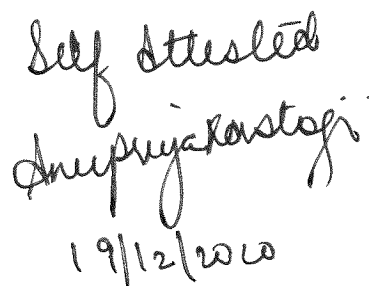 Self Attested
Anupriya Rastogi
19/12/2020